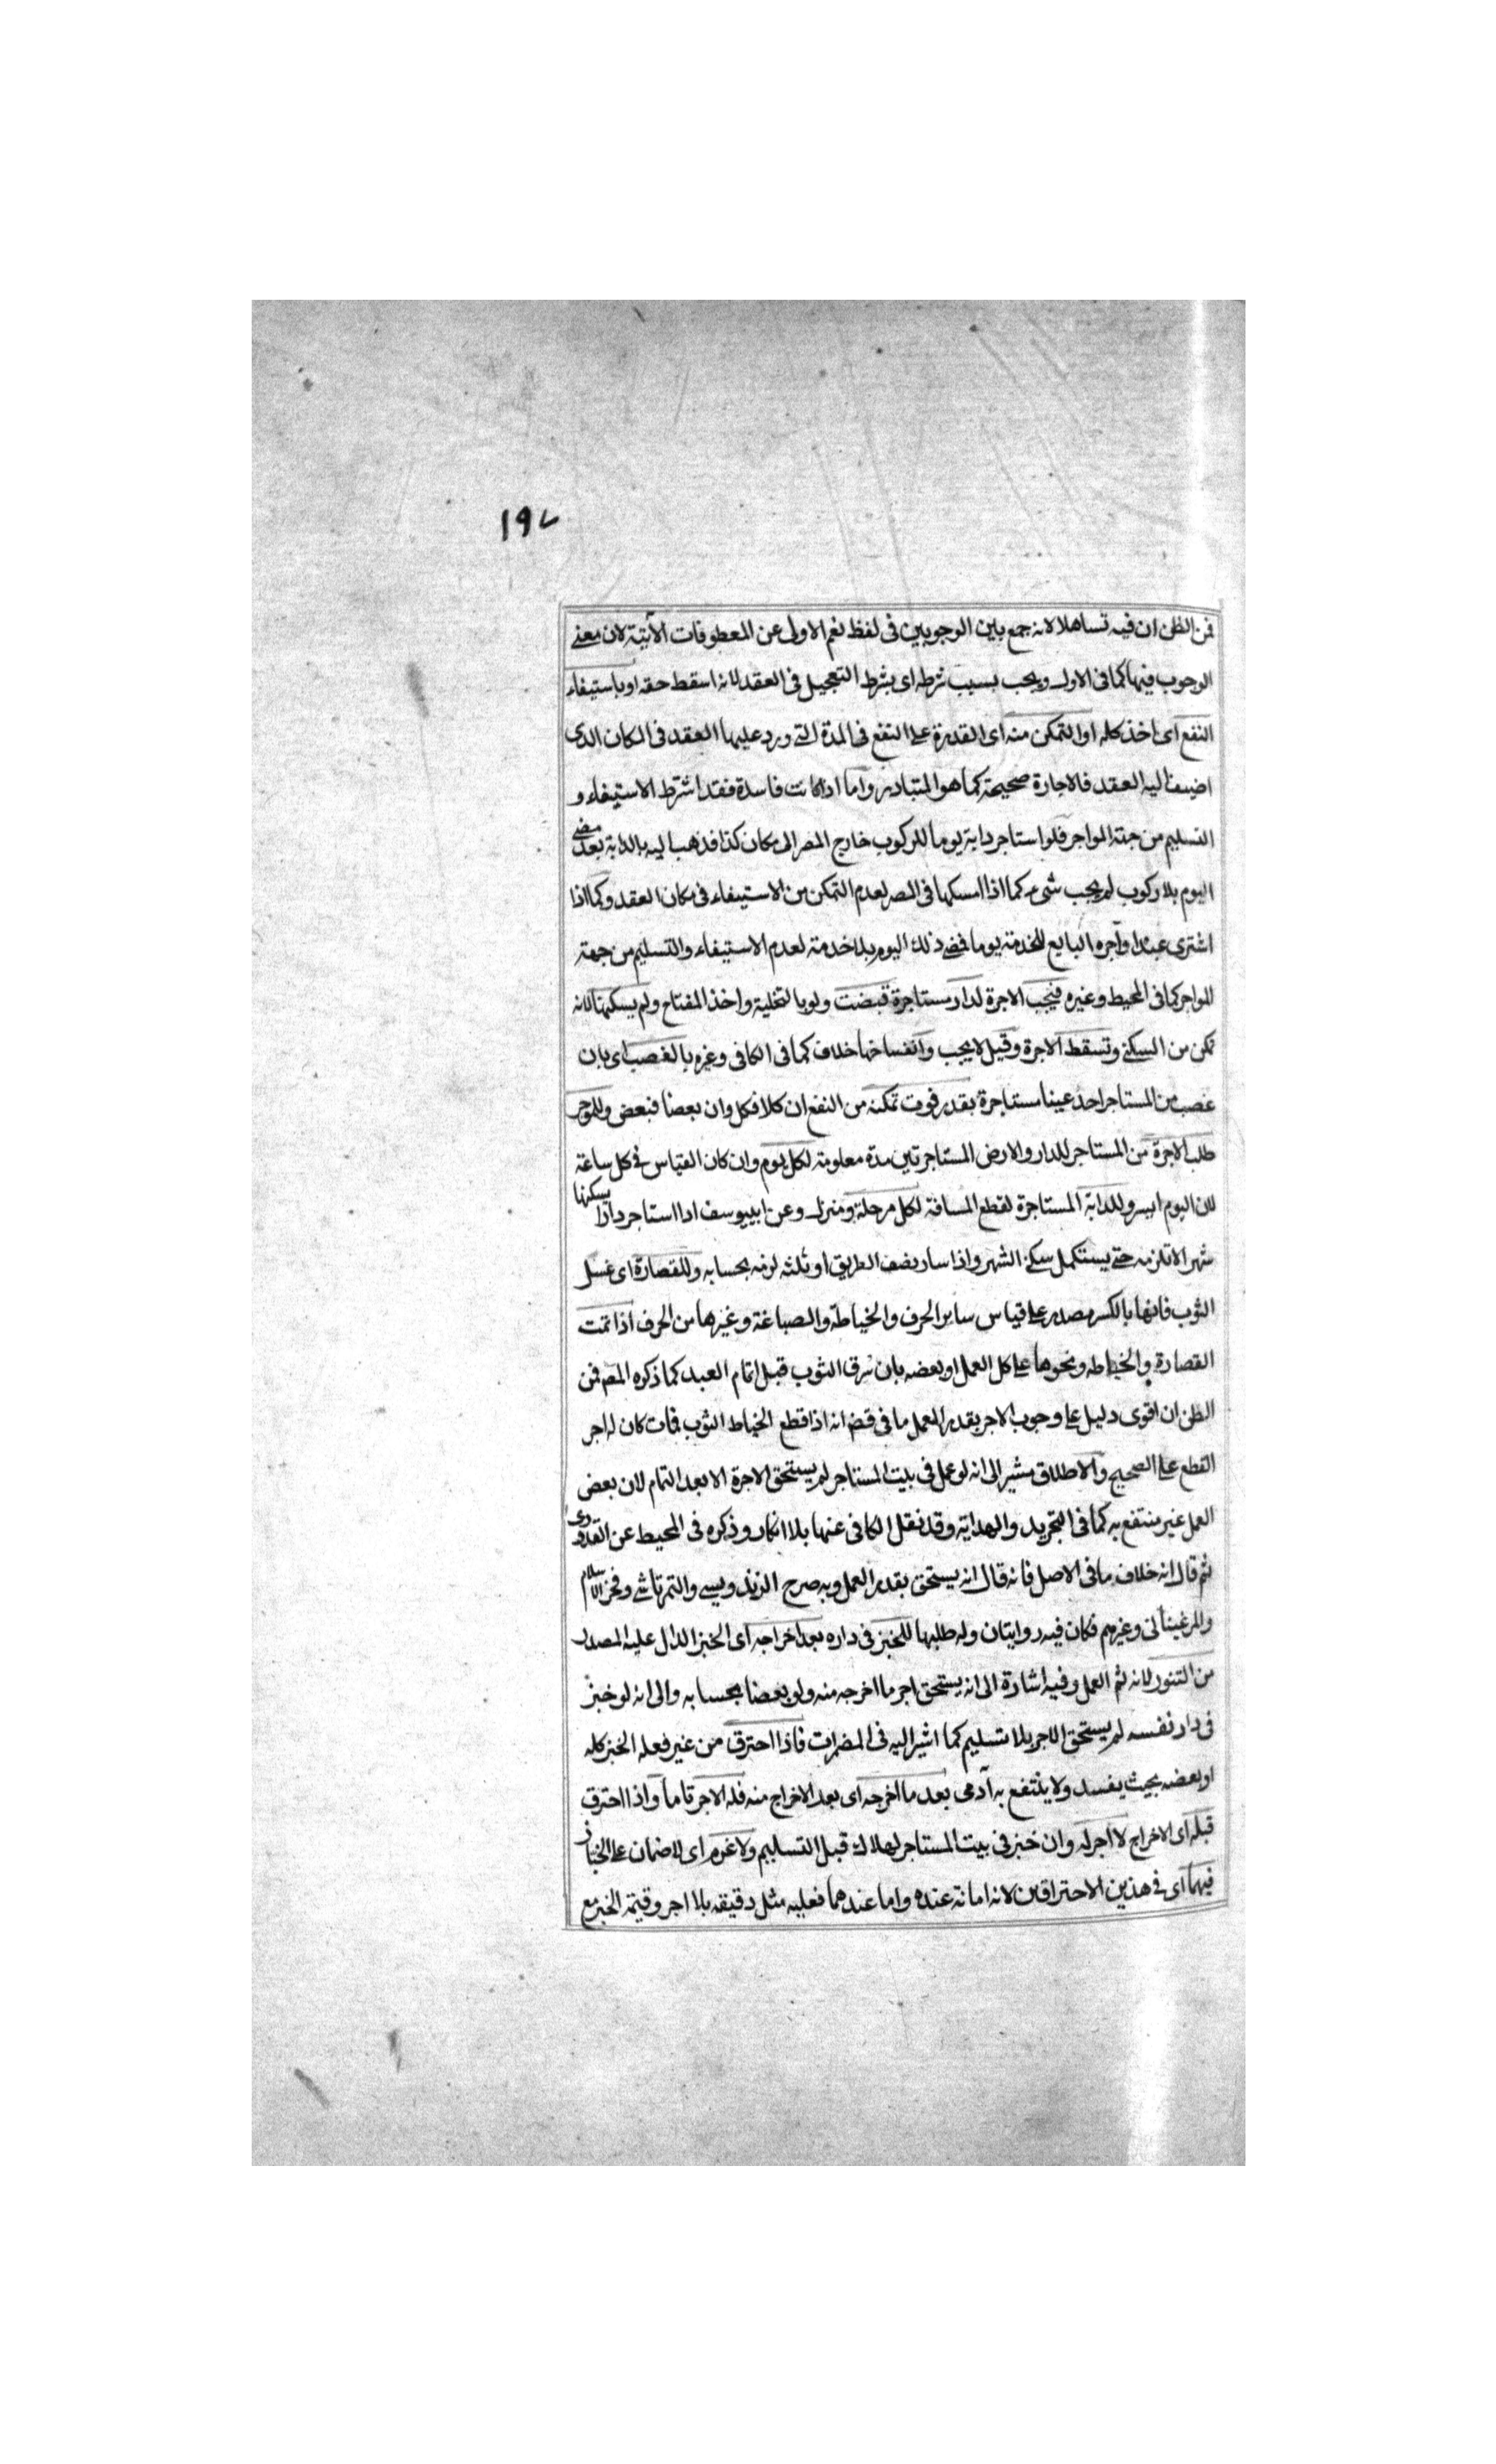 ١٩٧
فمن الظن ان فيه تساهلا لانه جمع بين الوجوبين فى لفظ نعم الاولى عن المعطوفات الآتية لان معنے
الوجوب فيها كما فى الاول ويجب بسبب شرطه اى بشرط التعجيل فى العقد لانه اسقط حقه او باستيفاء
النفع اى اخذ كله او التمكن منه اى القدرة على النفع فى المدة التے ورد عليها العقد فى المكان الذى
اضيف اليه العقد فالاجارة صحيحة كما هو المتبادر واما اذا كانت فاسدة فقد اشترط الاستيفاء و
التسليم من جهة المواجر فلو استاجر دابة يوما للركوب خارج المصر الى مكان كذا فذهب اليه بالدابة بعد مضے
اليوم بلا ركوب لم يجب شىء كما اذا امسكها فى المصر لعدم التمكن من الاستيفاء فى مكان العقد وكما اذا
اشترى عبدا وآجره البايع للخدمة يوما فمضے ذلك اليوم بلا خدمة لعدم الاستيفاء والتسليم من جهة
المواجر كما فى المحيط وغيره فيجب الاجرة لدار مستاجرة قبضت ولو بالتخلية واخذ المفتاح ولم يسكنها لانه
تمكن من السكنے وتسقط الاجرة وقيل لا يجب وانفساخها خلاف كما فى الكافى وغيره بالغصب اى بان
غصب من المستاجر احد عينا مستاجرة بقدر فوت تمكنه من النفع ان كلا فكل وان بعضا فبعض وللموجر
طلب الاجرة من المستاجر للدار والارض المستاجرتين مدة معلومة لكل يوم وان كان القياس فى كل ساعة
لان اليوم ايسر وللدابة المستاجرة لقطع المسافة لكل مرحلة ومنزل وعن ابيوسف اذا استاجر دارا يسكنها
شهرا لا تلزمه حتے يستكمل سكنے الشهر واذا سار نصف الطريق او ثلثه لزمه بحسابه وللقصارة اى غسل
الثوب فانها بالكسر مصدر على قياس ساير الحرف والخياطة والصباغة وغيرها من الحرف اذا تمت
القصارة والخياطه ونحوها على كل العمل او بعضه بان سرق الثوب قبل اتمام العبد كما ذكره المصـ فمن
الظن ان اقوى دليل على وجوب الاجر بقدر العمل ما فى قضـ انه اذا قطع الخياط الثوب فمات كان له اجر
القطع على الصحيح والاطلاق مشير الى انه لو عمل فى بيت المستاجر لم يستحق الاجرة الا بعد التمام لان بعض
العمل غير منتفع به كما فى التجريد والهداية وقد نقل الكافى عنها بلا انكار وذكره فى المحيط عن القدورى
ثم قال انه خلاف ما فى الاصل فانه قال انه يستحق بقدر العمل وبه صرح الزندويسے والتمرتاشے وفخر الاسلام
والمرغينانى وغيرهم فكان فيه روايتان وله طلبها للخبز فى داره بعد اخراجه اى الخبز الدال عليه المصدر
من التنور لانه ثم العمل وفيه اشارة الى انه يستحق اجر ما اخرجه منه ولو بعضا بحسابه والى انه لو خبز
فى دار نفسه لم يستحق الاجر بلا تسليم كما اشير اليه فى المضمرات فاذا احترق من غير فعله الخبز كله
او بعضه بحيث يفسد ولا ينتفع به آدمى بعد ما اخرجه اى بعد الاخراج منه فله الاجر تاما واذا احترق
قبله اى الاخراج لا اجر له وان خبز فى بيت المستاجر لهلاك قبل التسليم ولا غرم اى لا ضمان على الخباز
فيهما اى فے هذين الاحتراقين لانه امانة عنده واما عندهما فعليه مثل دقيقه بلا اجر وقيمة الخبز مع